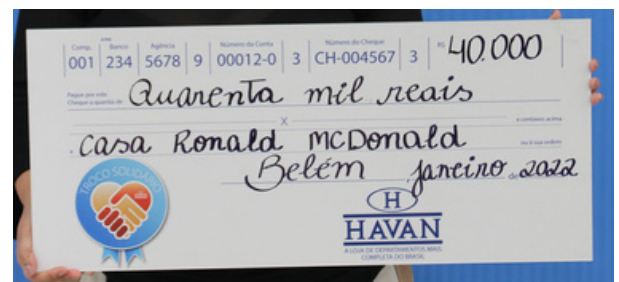 Comp. Banco Agência Número da Conta Número do Cheque R$
001 234 5678 9 00012-0 3 CH-004567 3 40.000
Pague por este
Cheque a quantia de Quarenta mil reais
X e centavos acima
Casa Ronald McDonald ou à sua ordem
Belém janeiro de 2022
TROCO SOLIDÁRIO
H
HAVAN
A LOJA DE DEPARTAMENTOS MAIS
COMPLETA DO BRASIL